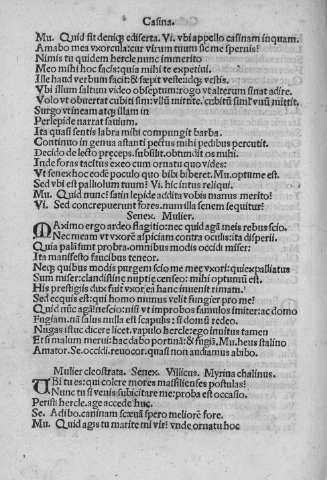 Casina.
Mu. Quid sit deniq; ediserta. Vi. vbi appello casinam inquam.
Amabo mea vxorcula: cur virum tuum sic me spernis?
Nimis tu quidem hercle nunc immerito
Meo mihi hoc facis: quia mihi te expetiui.
Ille haud verbum facit: & sæpit vestendq; vestis.
Vbi illum saltum video obseptum: rogo vt alterum sinat adire.
Volo vt obuertat cubiti sim: vllū mittite. cubitū simˡ vusǭ mittit.
Surgo vtineam atq; illam in
Perlepide narrat sauiam.
Ita quasi sentis labra mihi compungit barba.
Continuo in genua astanti pectus mihi pedibus percutit.
Decido de lecto preceps. subsilit. obtundit os mihi.
Inde foras tacitus exeo cum ornatu quo vides:
Vt senex hoc eodē poculo quo bibi biberet. Mu. optume est.
Sed vbi est palliolum tuum? Vi. hic intus reliqui.
Mu. Quid nunc? satin lepide addita vobis manus merito?
Vi. Sed concrepuerunt fores. num illa senem sequitur?
Senex. Mulier.
MAximo ergo ardeo flagitio: nec quid agā meis rebus scio.
Nec meam vt vxorē aspiciam contra oculis: ita disperii.
Quia palā sunt probra. omnibus modis occidi miser:
Ita manifesto faucibus teneor.
Neq; quibus modis purgem scio me meę vxori: quiexpalliatus
Sum miser: clandistinę nuptię censeo: mihi optumū est.
His prestigiis dux fuit vxor. ei hanc inuenit rimam.
Sed ecquis est: qui homo munus velit fungier pro me?
Quid nūc agā? nescio: nisi vt improbos famulos imiter: ac domo
Fugiam. nā salus nulla est scapulis: si domū redeo.
Nugas istuc dicere licet. vapulo hercle: ego inuitus tamen
Et si malum merui: hac dabo portinā: & fugiā. Mu. heus stalino
Amator. Se. occidi. reuocor. quasi non audiamus abibo.
Mulier cleostrata. Senex. Vilicus. Myrina chalinus.
VBi tu es: qui colere mores massilienses postulas?
Nunc tu si venis subicitare me: proba est occasio.
Perii: hercle. age accede huc.
Se. Adibo. caninam scæuā spero meliorē fore.
Mu. Quid agis tu marite mi vir? vnde ornatu hoc